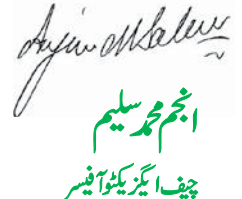 Anjum M Saleem
انجم محمد سلیم
چیف ایگزیکٹو آفیسر